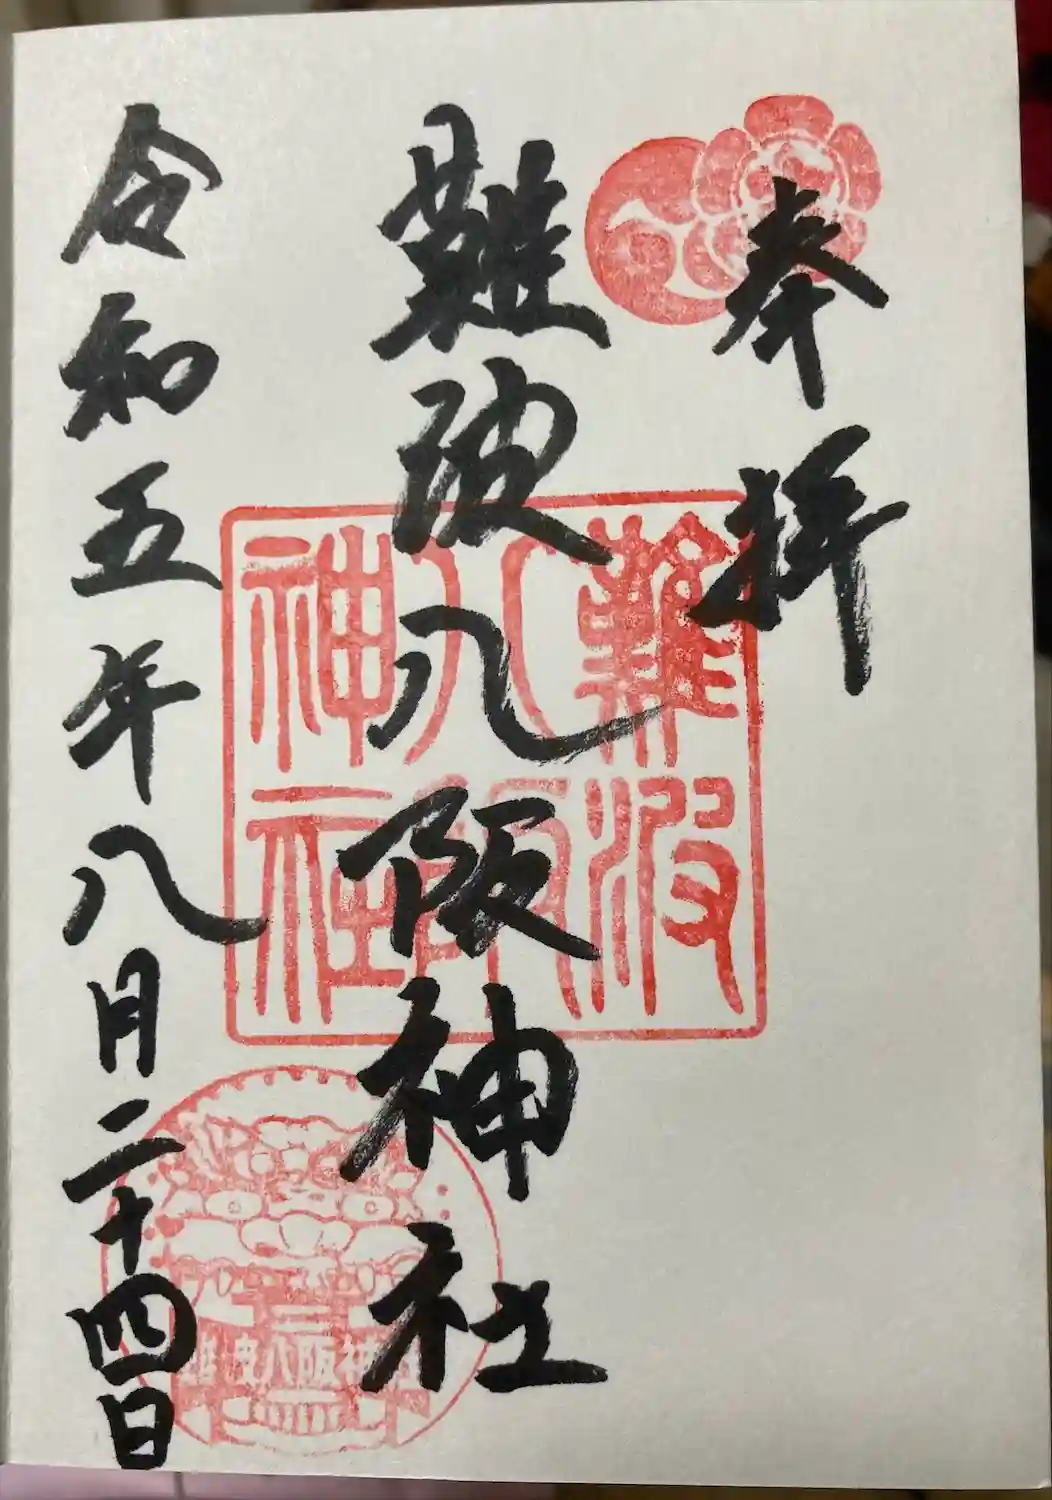 奉拝
難波八阪神社
令和五年八月二十四日
難波
八阪
神社
難波八阪神社